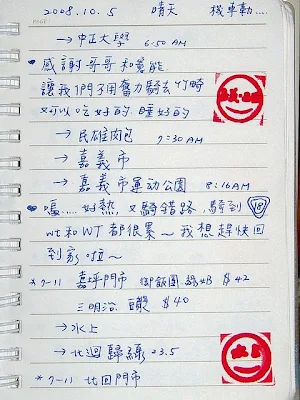 2008.10.5 晴天 機車勤....
→ 中正大學 6:50 AM
感謝哥哥和
讓我們了用奮力騎去竹崎
又可以吃好的 睡好的
→ 民雄肉包 7:30 AM
→ 嘉義市
→ 嘉義市運动公園 8:16AM
噁..... 好熱 又騎錯路, 騎到 18
WT和WT都很累~我想趕快回
到家啦~
*7-11 嘉坪門市 御飯團 綠奶 $42
三明治 $40
→ 水上
→ 北迴歸線 23.5
*7-11 北回門市